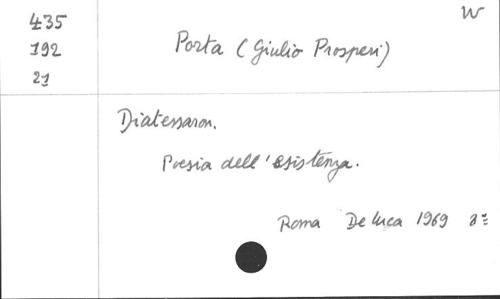 W
435
192
21
Porta (Giulio Prosperi)
Diatessaron.
Poesia dell'esistenza.
Roma De Luca 1969 8º